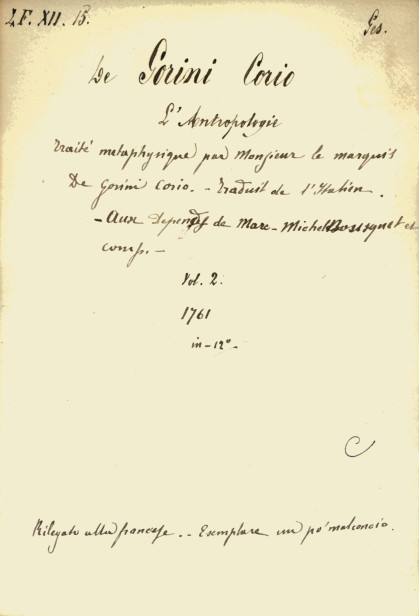 LF. XII. 15.
Ges.
De Gorini Corio
L'Antropologie
traité metaphysique par Monsieur le marquis
De Gorini Corio. - Traduit de l'Italien.
- Aux Depends de Marc-Michel Bousquet et
comp. -
Vol. 2.
1761
in-12º-
Rilegato alla francese. - Esemplare un po' malconcio.